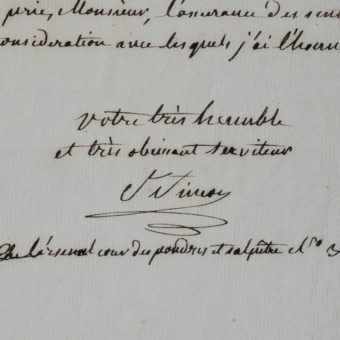 prie, Monsieur, l'assurance des sent
consideration avec lesquels j'ai l'honn
votre très humble
et très obeissant serviteur
St Simon
de l'arsenal cour des poudres et salpêtre No 3